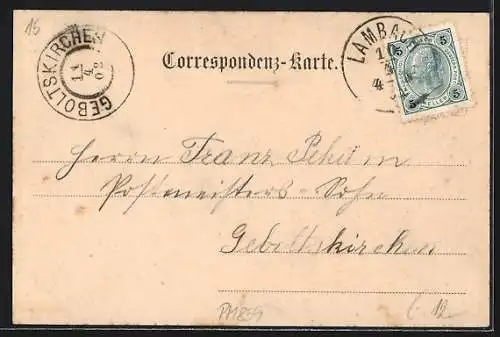 15
GEBOLTSKIRCHEN
11
4
02
Correspondenz-Karte.
LAMBACH
10
4
5 5
5 5
HELLER
Herrn Franz Schüm
Postmeisters-Sohn
Geboltskirchen